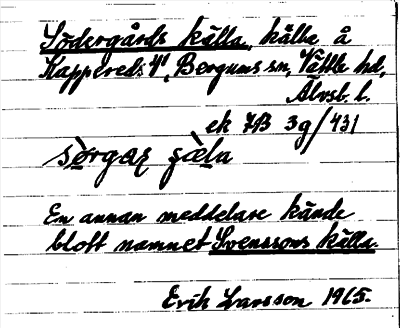 Södergårds källa, källa å
Kappered: 4¹, Bergums sn, Vättle hd,
Älvsb. l.
ek 7B 3g/431
sørgaʀ çæla
En annan meddelare kände
blott namnet Svenssons källa.
Erik Larsson 1965.